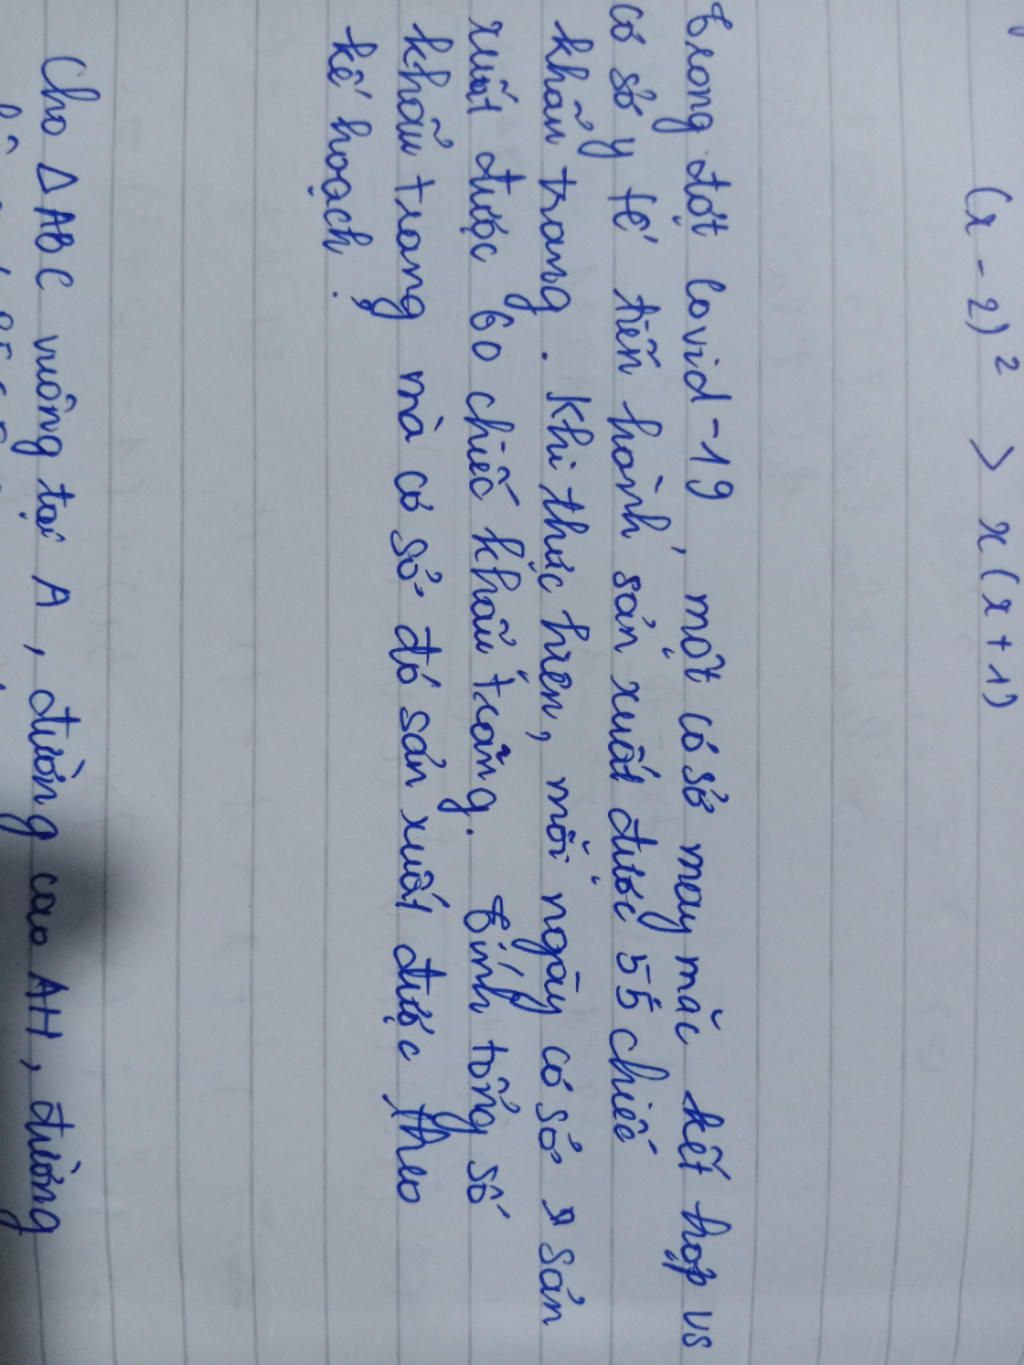 (x - 2)² > x(x + 1)
Trong đợt Covid-19, một cơ sở may mặc kết hợp vs
cơ sở y tế tiến hành sản xuất được 55 chiếc
khẩu trang. Khi thực hiện, mỗi ngày cơ sở sản
xuất được 60 chiếc khẩu trang. Tính tổng số
khẩu trang mà cơ sở đó sản xuất được theo
kế hoạch.
Cho ΔABC vuông tại A, đường cao AH, đường